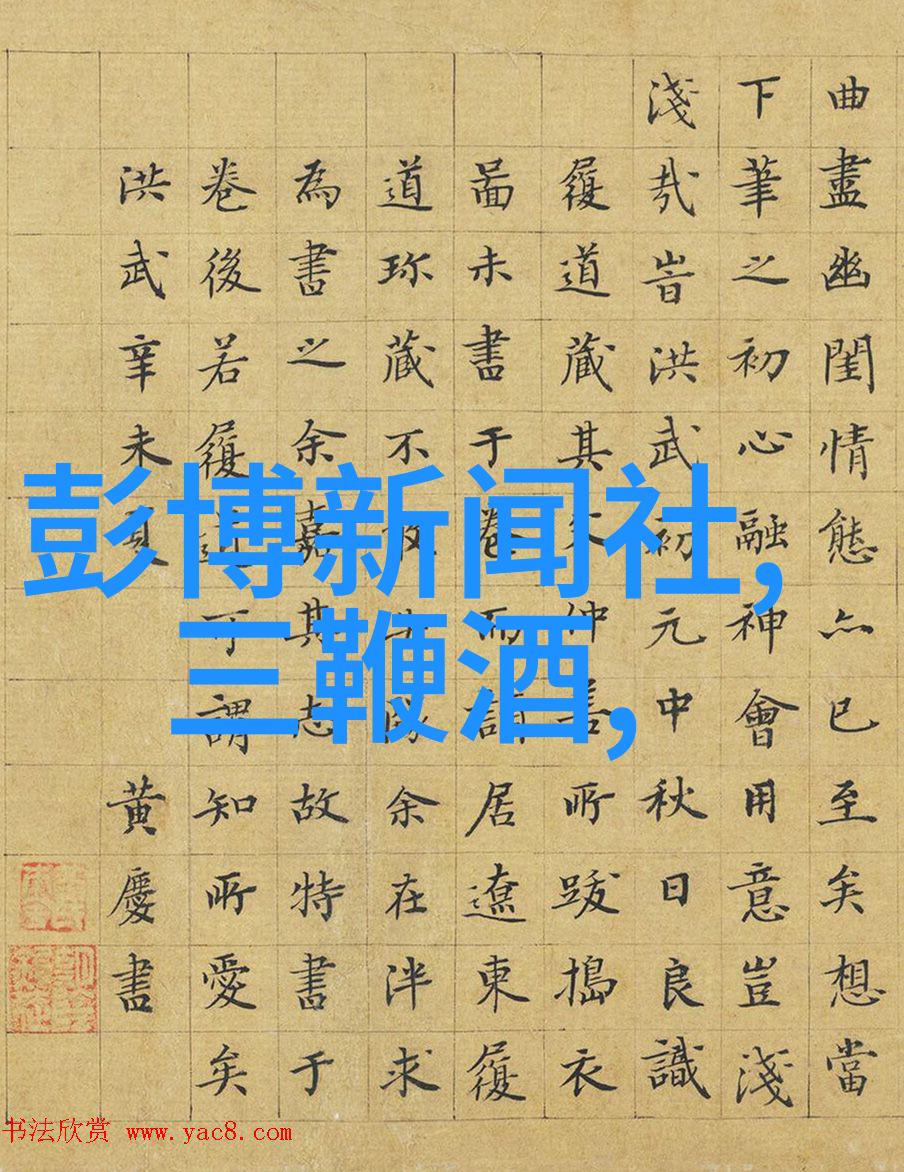 曲盡幽閨情態亦已至矣想當
下筆之初心融神會用意豈淺
淺哉旹洪武初元中秋日良識
履道藏其仲善所跋搗衣
啚未書于卷而謫居遼東履
道珎藏不余在泮求
為書之余嘉其志故特書于
卷後若履道可謂知所愛矣
洪武辛未夏 黃慶書
彭博新闻社,
三鞭酒,
书法欣赏 www.yac8.com